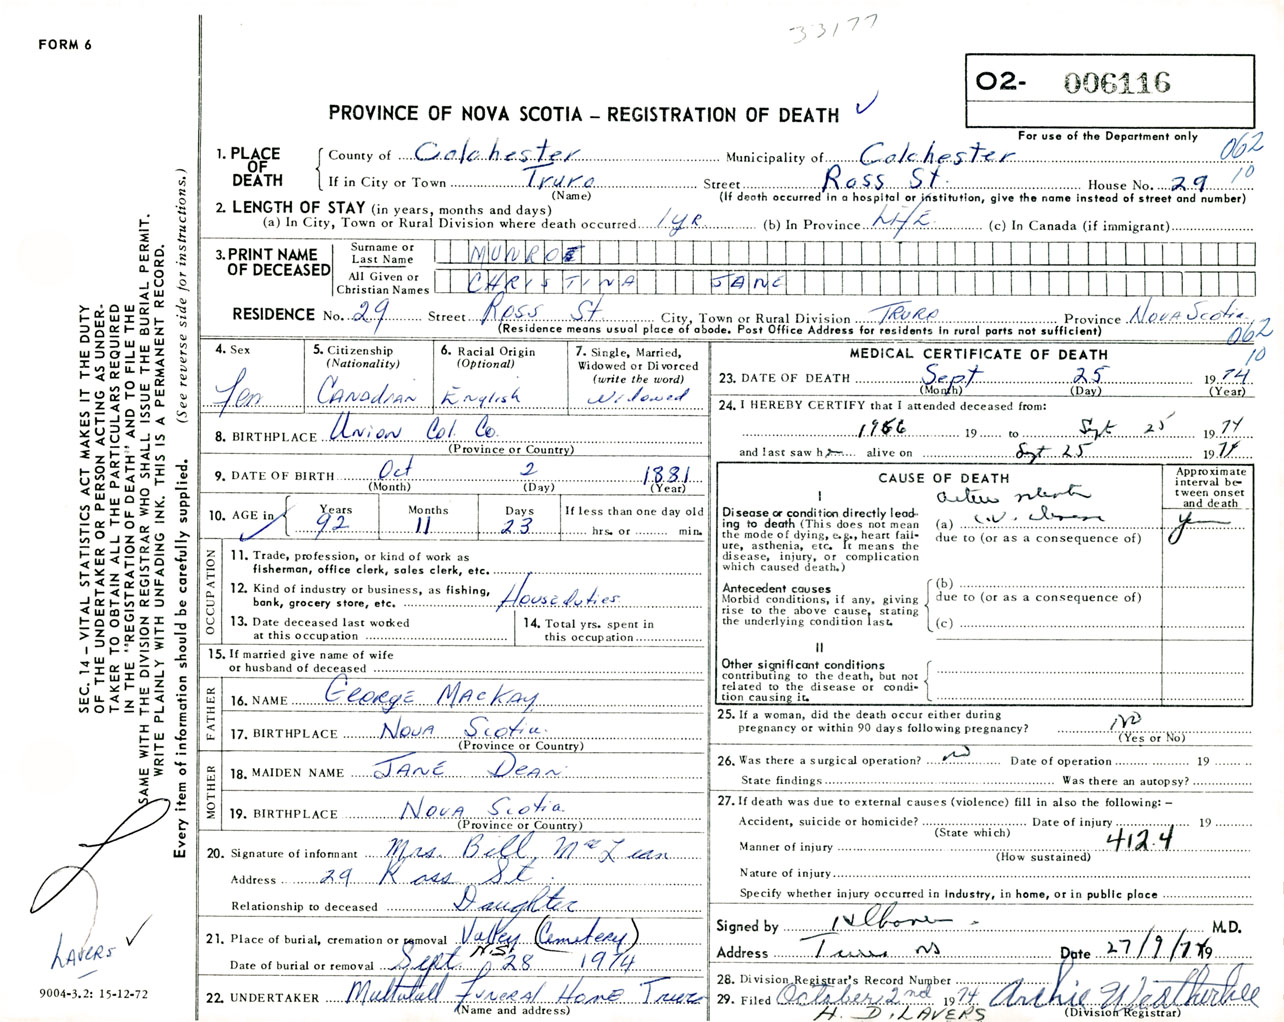 33177
FORM 6
02- 006116
PROVINCE OF NOVA SCOTIA – REGISTRATION OF DEATH ✓
For use of the Department only
062
10
1. PLACE OF DEATH
County of Colchester Municipality of Colchester
If in City or Town Truro Street Ross St. House No. 29
(Name) (If death occurred in a hospital or institution, give the name instead of street and number)
2. LENGTH OF STAY (in years, months and days)
(a) In City, Town or Rural Division where death occurred 1 yr (b) In Province Life (c) In Canada (if immigrant)
3. PRINT NAME OF DECEASED
Surname or Last Name MUNROE
All Given or Christian Names CHRISTINA JANE
RESIDENCE No. 29 Street Ross St City, Town or Rural Division Truro Province Nova Scotia
(Residence means usual place of abode. Post Office Address for residents in rural parts not sufficient)
062
10
4. Sex Fem
5. Citizenship (Nationality) Canadian
6. Racial Origin (Optional) English
7. Single, Married, Widowed or Divorced (write the word) Widowed
8. BIRTHPLACE Union Col. Co.
(Province or Country)
9. DATE OF BIRTH Oct 2 1881
(Month) (Day) (Year)
10. AGE in Years 92 Months 11 Days 23 If less than one day old hrs. or min.
OCCUPATION
11. Trade, profession, or kind of work as fisherman, office clerk, sales clerk, etc.
12. Kind of industry or business, as fishing, bank, grocery store, etc. House duties
13. Date deceased last worked at this occupation
14. Total yrs. spent in this occupation
15. If married give name of wife or husband of deceased
FATHER
16. NAME George MacKay
17. BIRTHPLACE Nova Scotia
(Province or Country)
MOTHER
18. MAIDEN NAME Jane Dean
19. BIRTHPLACE Nova Scotia
(Province or Country)
20. Signature of informant Mrs. Bill McLean
Address 29 Ross St.
Relationship to deceased Daughter
21. Place of burial, cremation or removal Valley (Cemetery) N.S.
Date of burial or removal Sept. 28 1974
22. UNDERTAKER Funeral Home Truro
(Name and address)
MEDICAL CERTIFICATE OF DEATH
23. DATE OF DEATH Sept 25 1974
(Month) (Day) (Year)
24. I HEREBY CERTIFY that I attended deceased from:
1966 19 to Sept 25 1974
and last saw h alive on Sept 25 1974
CAUSE OF DEATH
Approximate interval between onset and death
I
Disease or condition directly leading to death (This does not mean the mode of dying, e.g., heart failure, asthenia, etc. It means the disease, injury, or complication which caused death.)
(a) C.V.
due to (or as a consequence of)
Antecedent causes
Morbid conditions, if any, giving rise to the above cause, stating the underlying condition last.
(b)
due to (or as a consequence of)
(c)
II
Other significant conditions contributing to the death, but not related to the disease or condition causing it.
25. If a woman, did the death occur either during pregnancy or within 90 days following pregnancy? no
(Yes or No)
26. Was there a surgical operation? no Date of operation 19
State findings Was there an autopsy?
27. If death was due to external causes (violence) fill in also the following: –
Accident, suicide or homicide? Date of injury 19
(State which)
Manner of injury 412.4
(How sustained)
Nature of injury
Specify whether injury occurred in industry, in home, or in public place
Signed by M.D.
Address Truro NS Date 27/9/74 19
28. Division Registrar's Record Number
29. Filed October 2nd 1974 Archie Weatherbee
H. D. LAVERS (Division Registrar)
SEC. 14 – VITAL STATISTICS ACT MAKES IT THE DUTY
OF THE UNDERTAKER OR PERSON ACTING AS UNDER-
TAKER TO OBTAIN ALL THE PARTICULARS REQUIRED
IN THE "REGISTRATION OF DEATH" AND TO FILE THE
SAME WITH THE DIVISION REGISTRAR WHO SHALL ISSUE THE BURIAL PERMIT.
WRITE PLAINLY WITH UNFADING INK. THIS IS A PERMANENT RECORD.
Every item of information should be carefully supplied. (See reverse side for instructions.)
LAVERS ✓
9004-3.2: 15-12-72